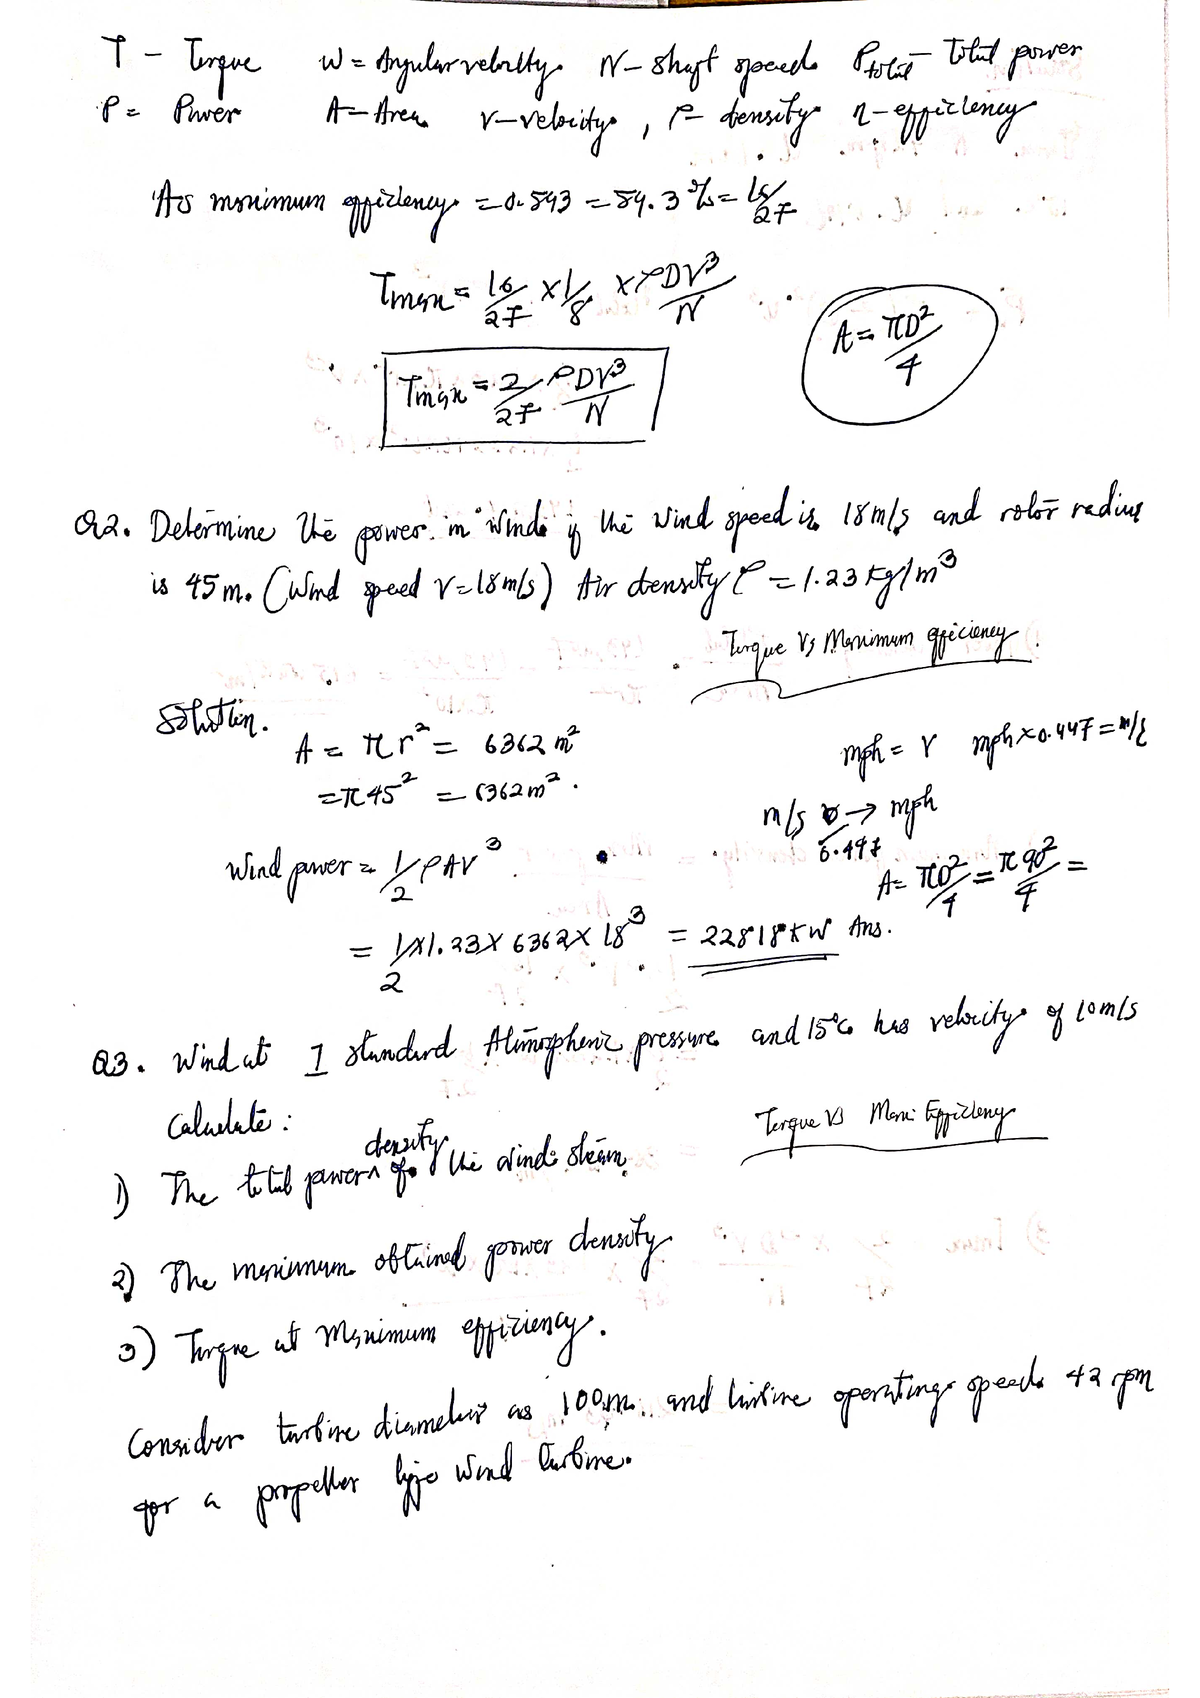 T - Torque   W = Angular velocity   N - shaft speed   Ptotal - Total power
P = Power   A = Area   V - velocity , ρ = density   η - efficiency
As maximum efficiency = 0.593 = 59.3 % = 16/27
Tmax = 16/27 × 1/8 × ρDV³/N
A = πD²/4
Tmax = 2/27 ρDV³/N
Q2. Determine the power in wind if the wind speed is 18m/s and rotor radius
is 45m. (Wind speed V=18m/s) Air density ρ = 1.23 kg/m³
Torque Vs Maximum efficiency
Solution.
A = πr² = 6362 m²
mph = V   mph×0.447 = m/s
= π45² = 6362m².
m/s → mph
0.447
Wind power = 1/2 ρAV³.
A = πD²/4 = π90²/4 =
= 1/2×1.23×6362×18³ = 22818kW Ans.
Q3. Wind at 1 standard Atmospheric pressure and 15°C has velocity of 10m/s
Calculate :
Torque Vs Maxi Efficiency
density
1) The total power ^ of the wind steam
2) The maximum obtained power density
3) Torque at Maximum efficiency.
Consider turbine diameter as 100m. and turbine operating speed 42 rpm
for a propeller type Wind turbine.